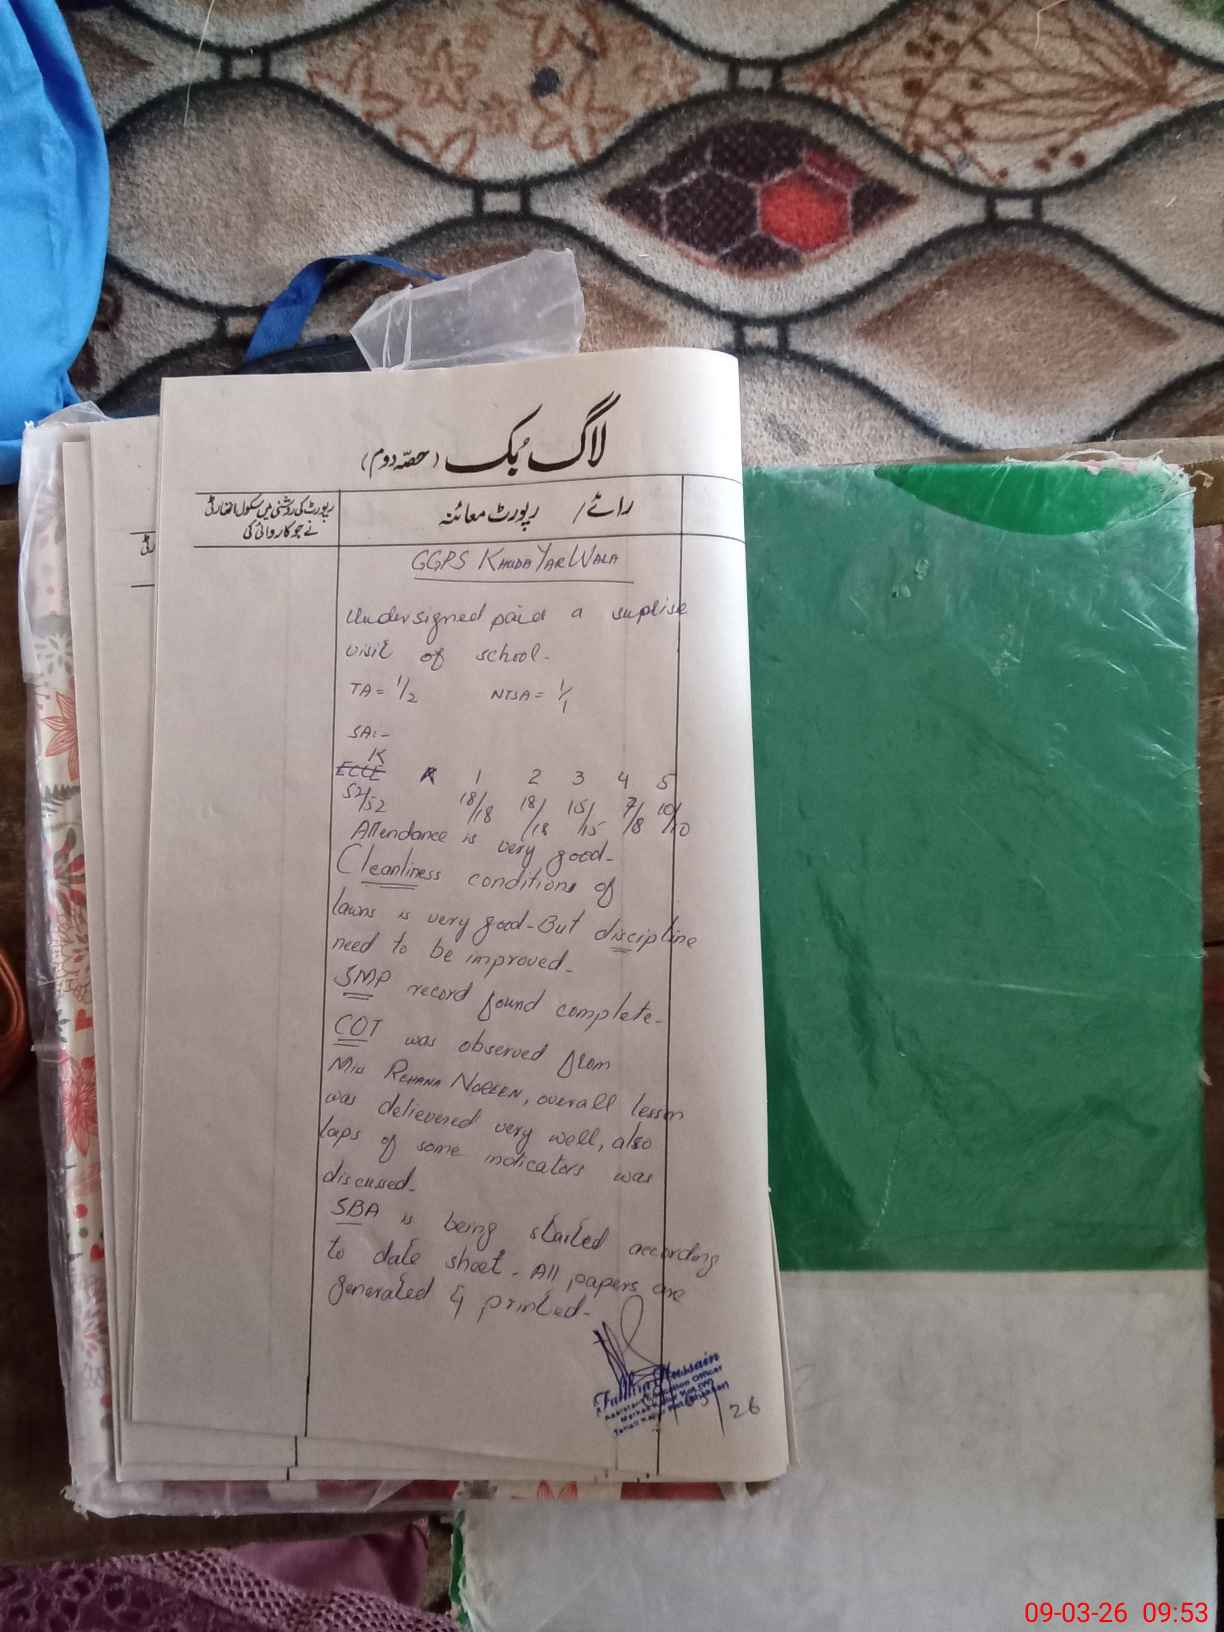 لاگ بُک (حصّہ دوم)
رائے / رپورٹ معائنہ
رپورٹ کی روشنی میں سکول اتھارٹی
نے جو کاروائی کی
GGPS KHUDA YAR WALA
Undersigned paid a suplise
visit of school-
TA = 1/2 NTSA = 1/1
SA:-
K
ECCE 1 2 3 4 5
52/52 18/18 18/18 15/15 7/8 10/10
Attendance is very good-
Cleanliness conditions of
lawns is very good- But discipline
need to be improved-
SMP record found complete-
COT was observed from
Miss REHANA NOREEN, overall lesson
was delievered very well, also
laps of some indicators was
discussed-
SBA is being started according
to date sheet - All papers are
generated & printed-
Hussain
Assistant Education Officer
26
رٹی
09-03-26 09:53